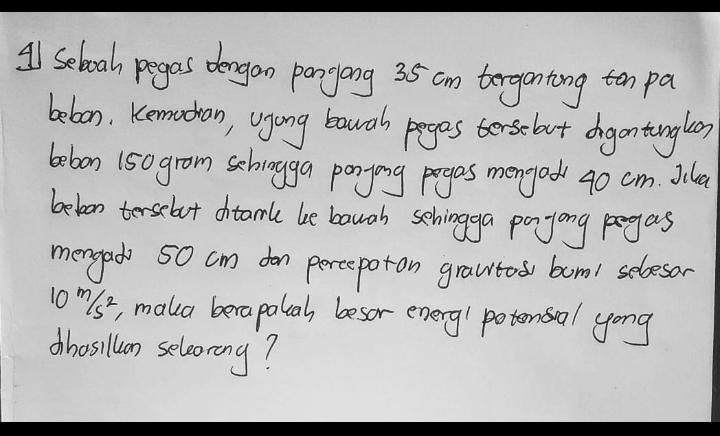 4] Sebuah pegas dengan panjang 35 cm tergantung tanpa
beban. Kemudian, ujung bawah pegas tersebut digantungkan
beban 150 gram sehingga panjang pegas menjadi 40 cm. Jika
beban tersebut ditarik ke bawah sehingga panjang pegas
menjadi 50 cm dan percepatan gravitasi bumi sebesar
10 m/s², maka berapakah besar energi potensial yang
dihasilkan sekarang?